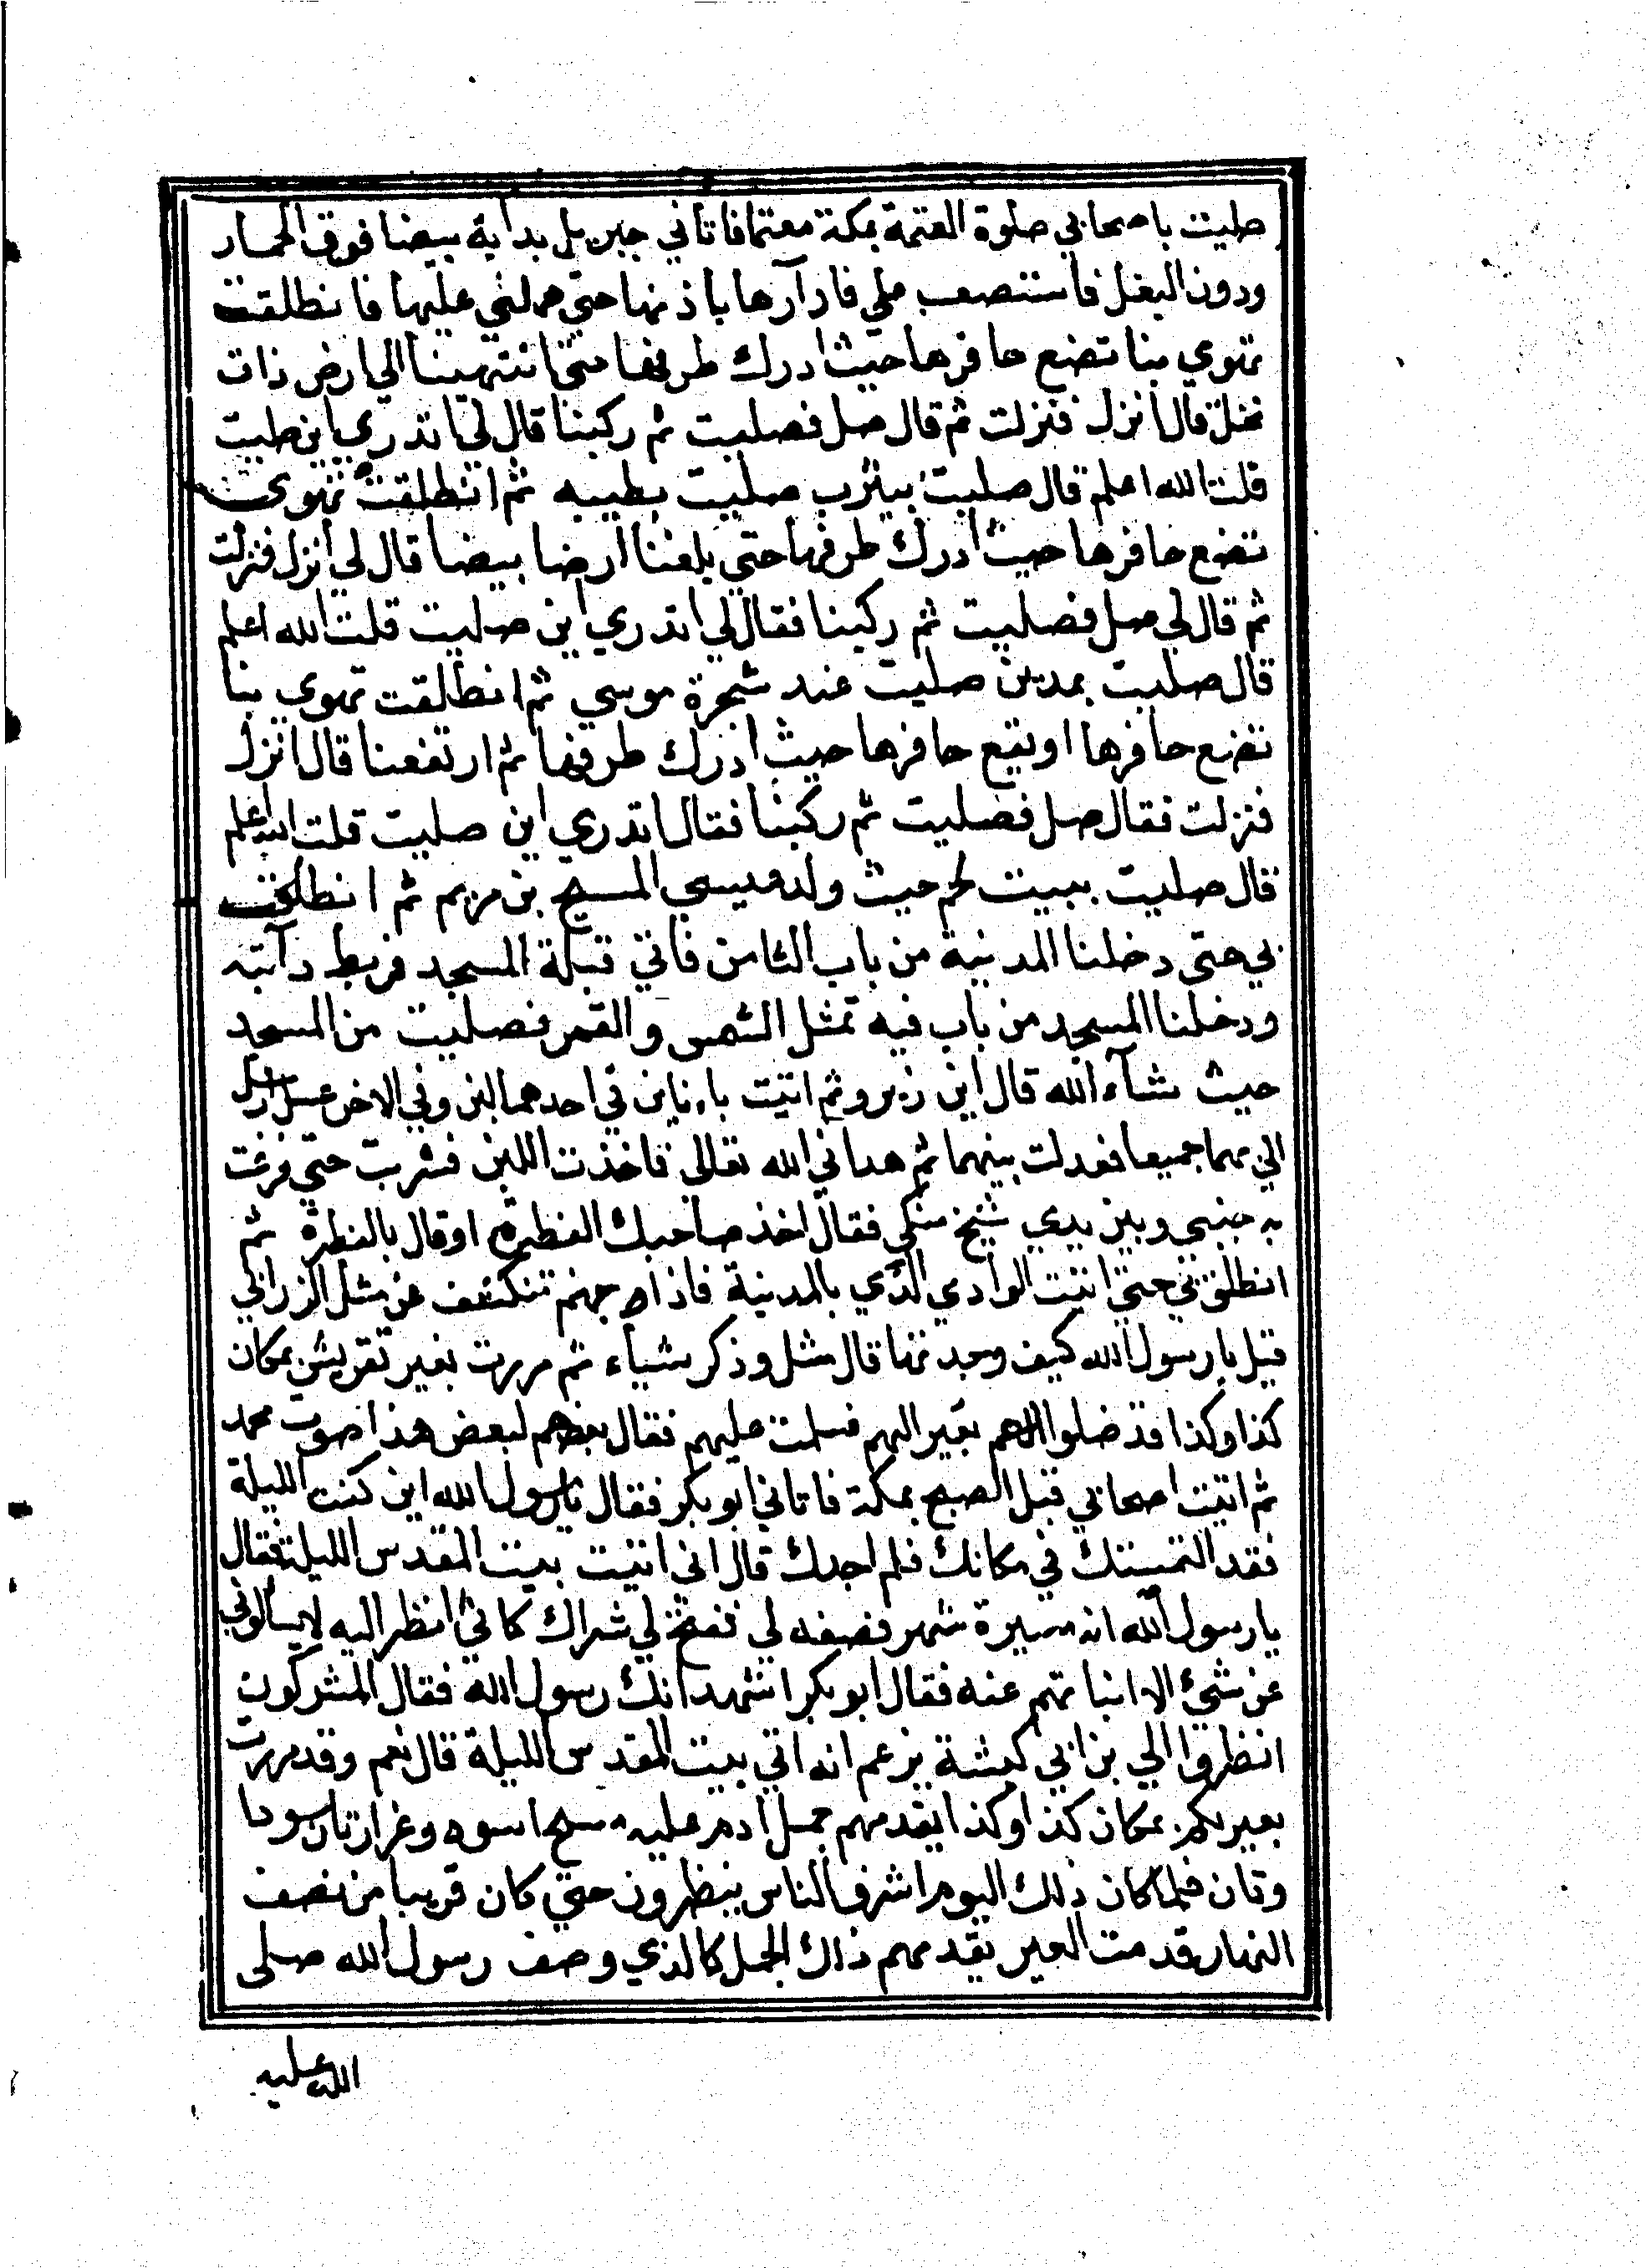 صليت باصحابي صلوة العتمة بمكة معتما فاتاني جبريل بدابة بيضا فوق الحمار
ودون البغل فاستصعب علي فادارها باذنها حتي حملني عليها فانطلقت
تهوي بنا تضع حافرها حيث ادرك طرفها حتي انتهينا الي ارض ذات
نخل قال انزل فنزلت ثم قال صل فصليت ثم ركبنا قال لي اتدري اين صليت
قلت الله اعلم قال صليت بيثرب صليت بطيبه ثم انطلقت تهوي
تضع حافرها حيث ادرك طرفها حتي بلغنا ارضا بيضا قال لي انزل فنزلت
ثم قال لي صل فصليت ثم ركبنا فقال لي اتدري اين صليت قلت الله اعلم
قال صليت بمدين صليت عند شجرة موسي ثم انطلقت تهوي بنا
تضع حافرها او يقع حافرها حيث ادرك طرفها ثم ارتفعنا قال انزل
فنزلت فقال صل فصليت ثم ركبنا فقال اتدري اين صليت قلت الله اعلم
قال صليت ببيت لحم حيث ولد عيسي المسيح بن مريم ثم انطلقت
بي حتى دخلنا المدينة من باب الثامن فاتي قبلة المسجد فربط دآبته
ودخلنا المسجد من باب فيه تمثل الشمس والقمر فصليت من المسجد
حيث شآء الله قال ابن زبرو ثم اتيت باناين في احدهما لبن وفي الاخر عسل ارسل
الي بهما جميعا فعدلت بينهما ثم هداني الله تعالى فاخذت اللبن فشربت حتي فرغت
به جنبي وبين يدي شيخ متكي فقال اخذ صاحبك الفطرة او قال بالفطرة ثم
انطلق بي حتي اتيت الوادي الذي بالمدينة فاذا جهنم تنكشف عن مثل الزرابي
قيل يا رسول الله كيف وجدتها قال مثل وذكر شياء ثم مررت بعير لقريش بمكان
كذا وكذا قد ضلوا بعير الهم فسلمت عليهم فقال بعضهم لبعض هذا صوت محمد
ثم اتيت اصحابي قبل الصبح بمكة فاتاني ابو بكر فقال يا رسول الله اين كنت الليلة
فقد التمستك في مكانك فلم اجدك قال اني اتيت بيت المقدس الليلة فقال
يا رسول الله انه مسيرة شهر فصفه لي ففتح لي شراك كاني انظر اليه لا يسالوني
عن شئ الا انباتهم عنه فقال ابو بكر اشهد انك رسول الله فقال المشركون
انظروا الي بن ابي كبشة يزعم انه اتي بيت المقدس الليلة قال نعم وقد مررت
بعير لكم بمكان كذا وكذا يقدمهم جمل ادم عليه مسح اسود وغرارتان سودا
وتان فلما كان ذلك اليوم اشرف الناس ينظرون حتي كان قريبا من نصف
النهار قدمت العير يقدمهم ذلك الجمل كالذي وصف رسول الله صلى
الله عليه